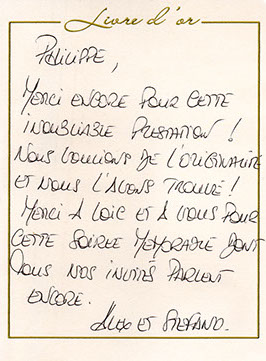 Livre d'or
PHILIPPE,
MERCI ENCORE POUR CETTE
INOUBLIABLE PRESTATION !
NOUS VOULIONS DE L'ORIGINALITÉ
ET NOUS L'AVONS TROUVÉ !
MERCI A LOIC ET A VOUS POUR
CETTE SOIREE MEMORABLE DONT
TOUS NOS INVITÉS PARLENT
ENCORE.
ET STEFANO.